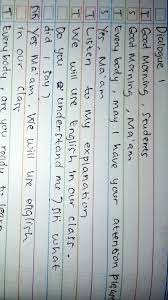 Dialogue
T Good Morning, Students
S Good Morning, Ma'am
T Every body, may I have your attention please
S Yes, Ma'am
T Listen to My explanation
T We will use English in our class.
Do you understand me? Siti what
did I say?
Siti Yes Ma'am. We will use english
in our class
T Every body, are you ready to learn